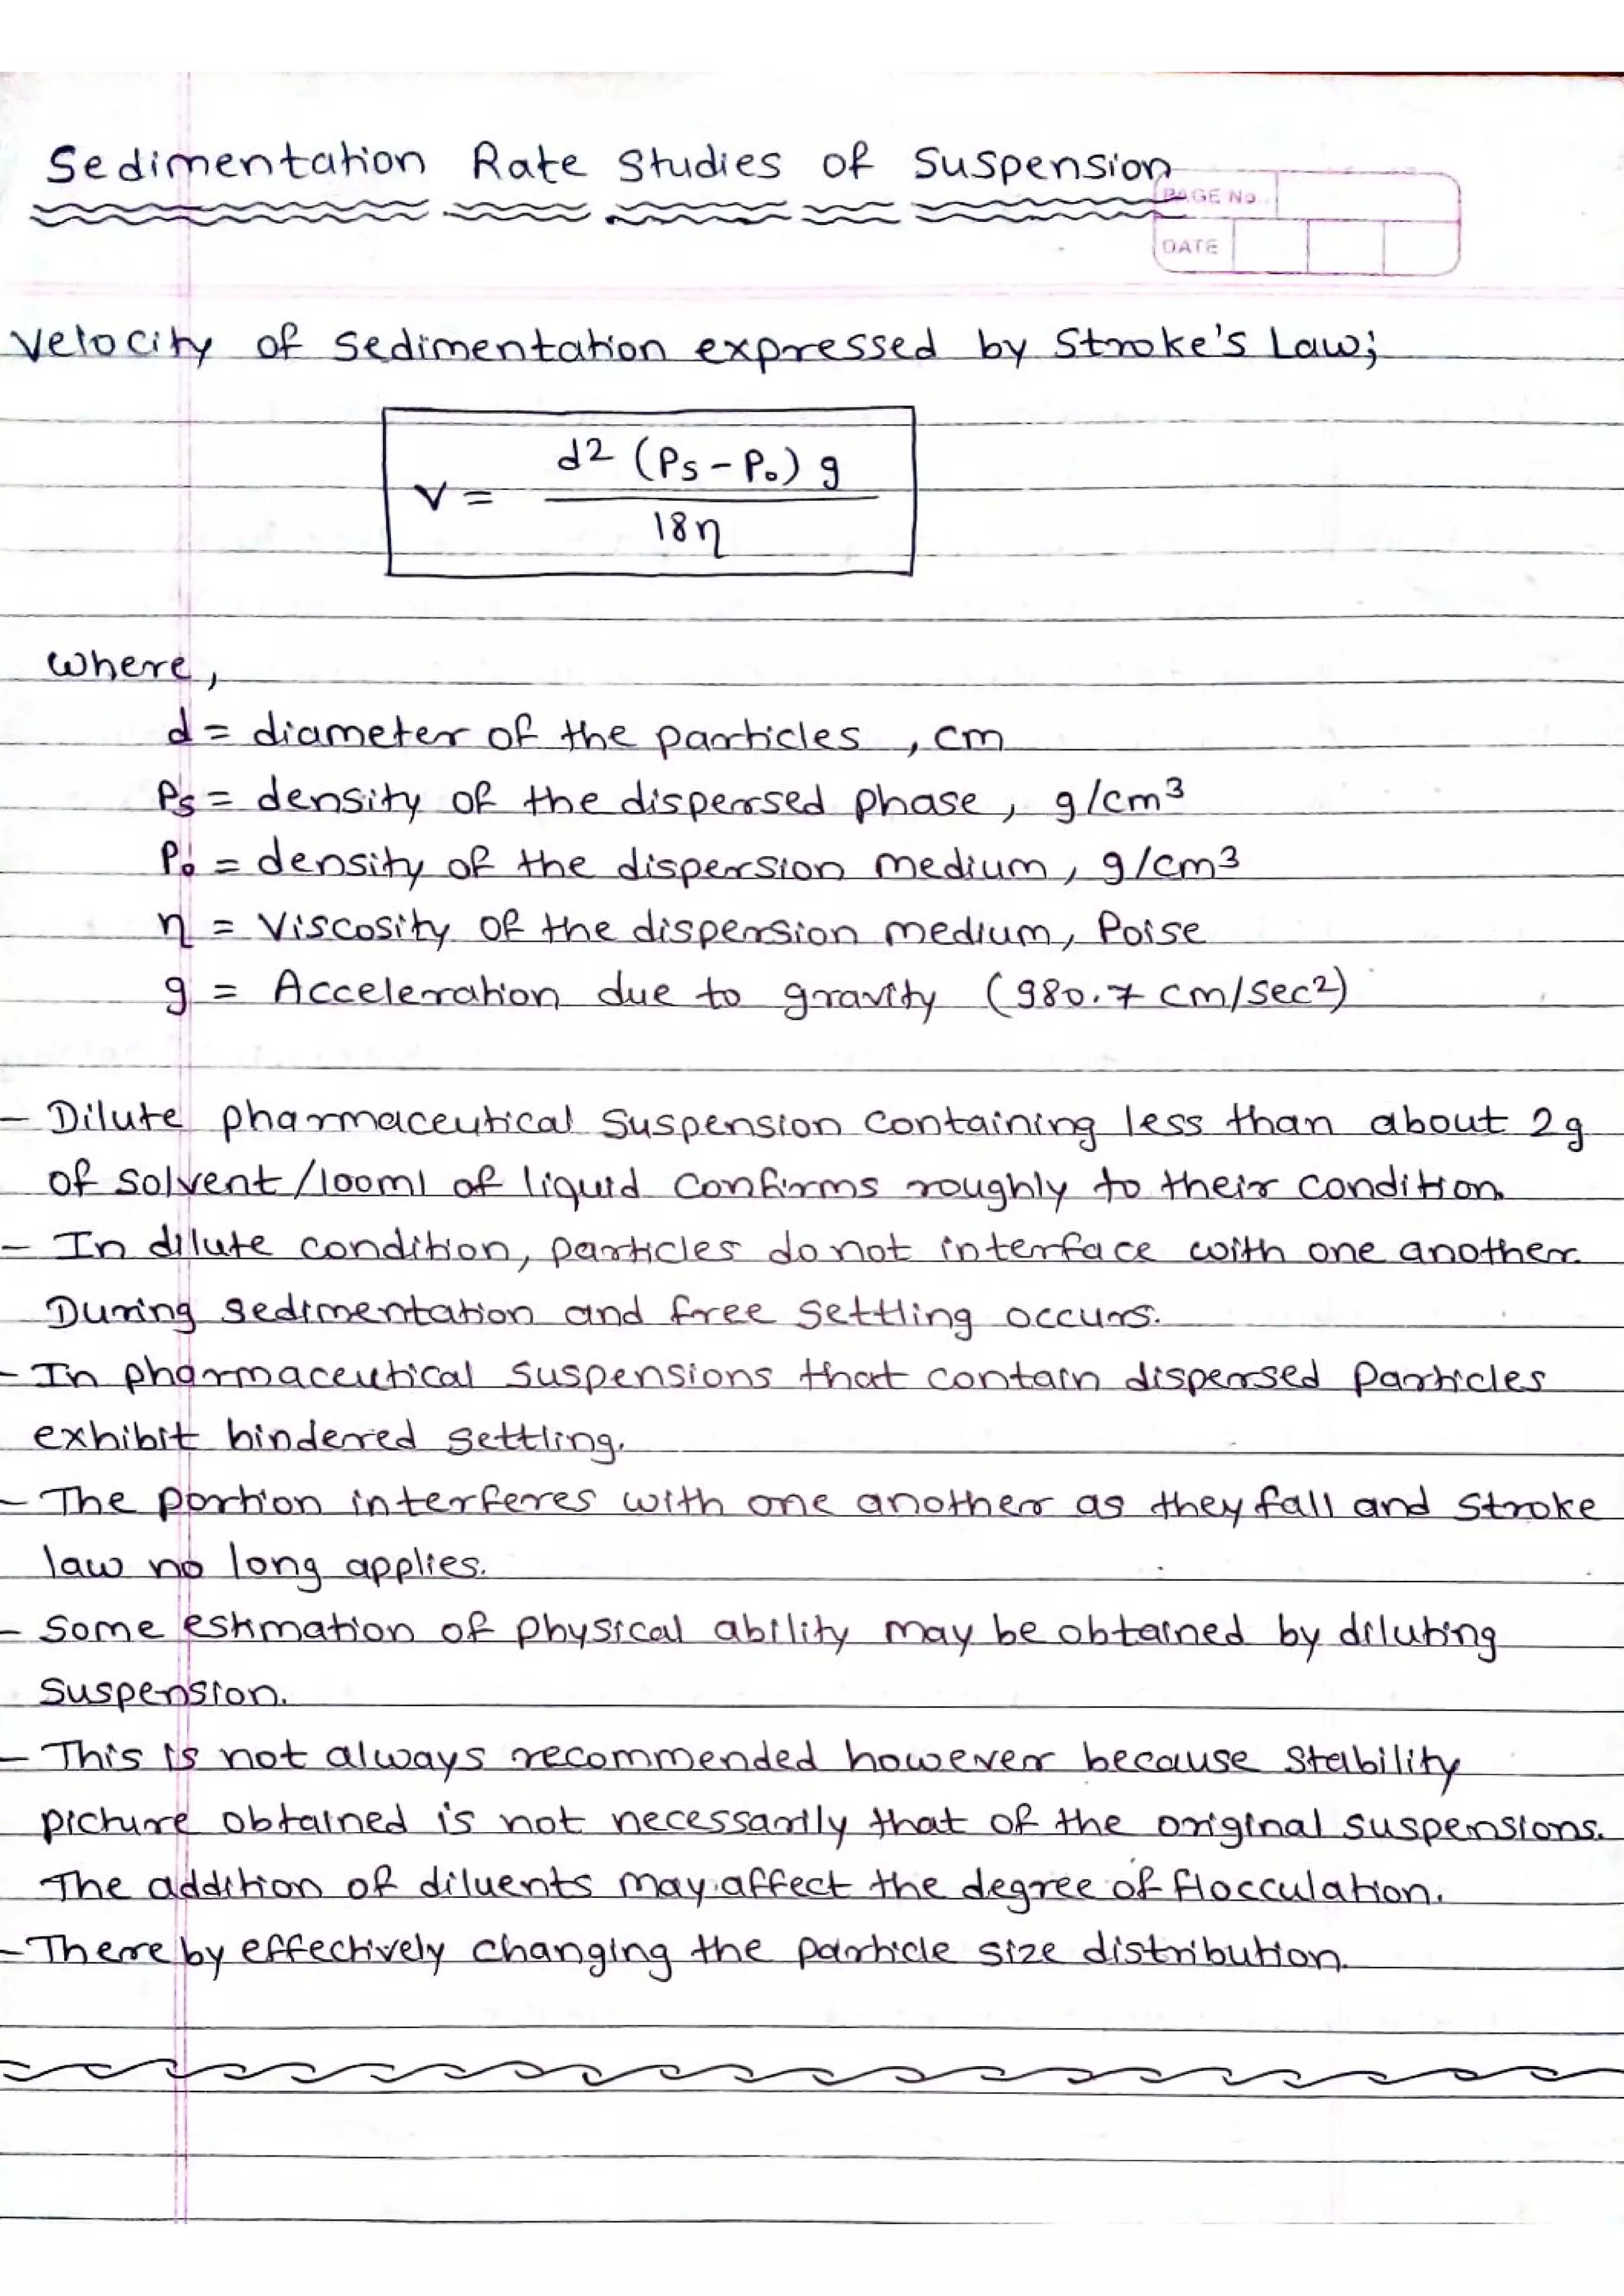 Sedimentation Rate Studies of Suspension
PAGE No.
DATE
Velocity of Sedimentation expressed by Stroke's Law;
V = d2 (Ps - Po) g
18η
where,
d = diameter of the particles , cm
Ps = density of the dispersed phase, g/cm3
Po = density of the dispersion medium, g/cm3
η = Viscosity of the dispersion medium, Poise
g = Acceleration due to gravity (980.7 cm/sec2)
- Dilute pharmaceutical Suspension containing less than about 2g
of Solvent/100ml of liquid confirms roughly to their condition.
- In dilute condition, particles do not interface with one another.
During sedimentation and free settling occurs.
- In pharmaceutical suspensions that contain dispersed Particles
exhibit hindered settling.
- The portion interferes with one another as they fall and Stroke
law no long applies.
- Some estimation of physical ability may be obtained by diluting
Suspension.
- This is not always recommended however because Stability
picture obtained is not necessarily that of the original suspensions.
The addition of diluents may affect the degree of flocculation.
- There by effectively changing the particle size distribution.